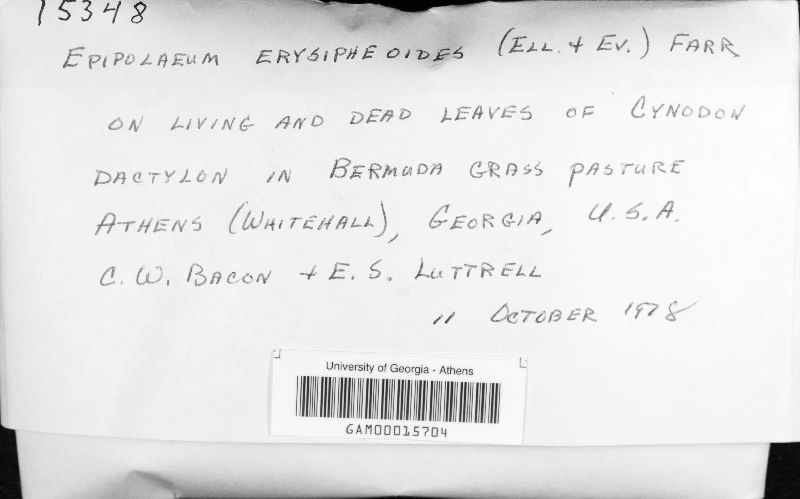 15348
EPIPOLAEUM ERYSIPHEOIDES (ELL. & EV.) FARR
ON LIVING AND DEAD LEAVES OF CYNODON
DACTYLON IN BERMUDA GRASS PASTURE
ATHENS (WHITEHALL), GEORGIA, U.S.A.
C. W. BACON & E. S. LUTTRELL
11 OCTOBER 1978
University of Georgia - Athens
GAM00015704